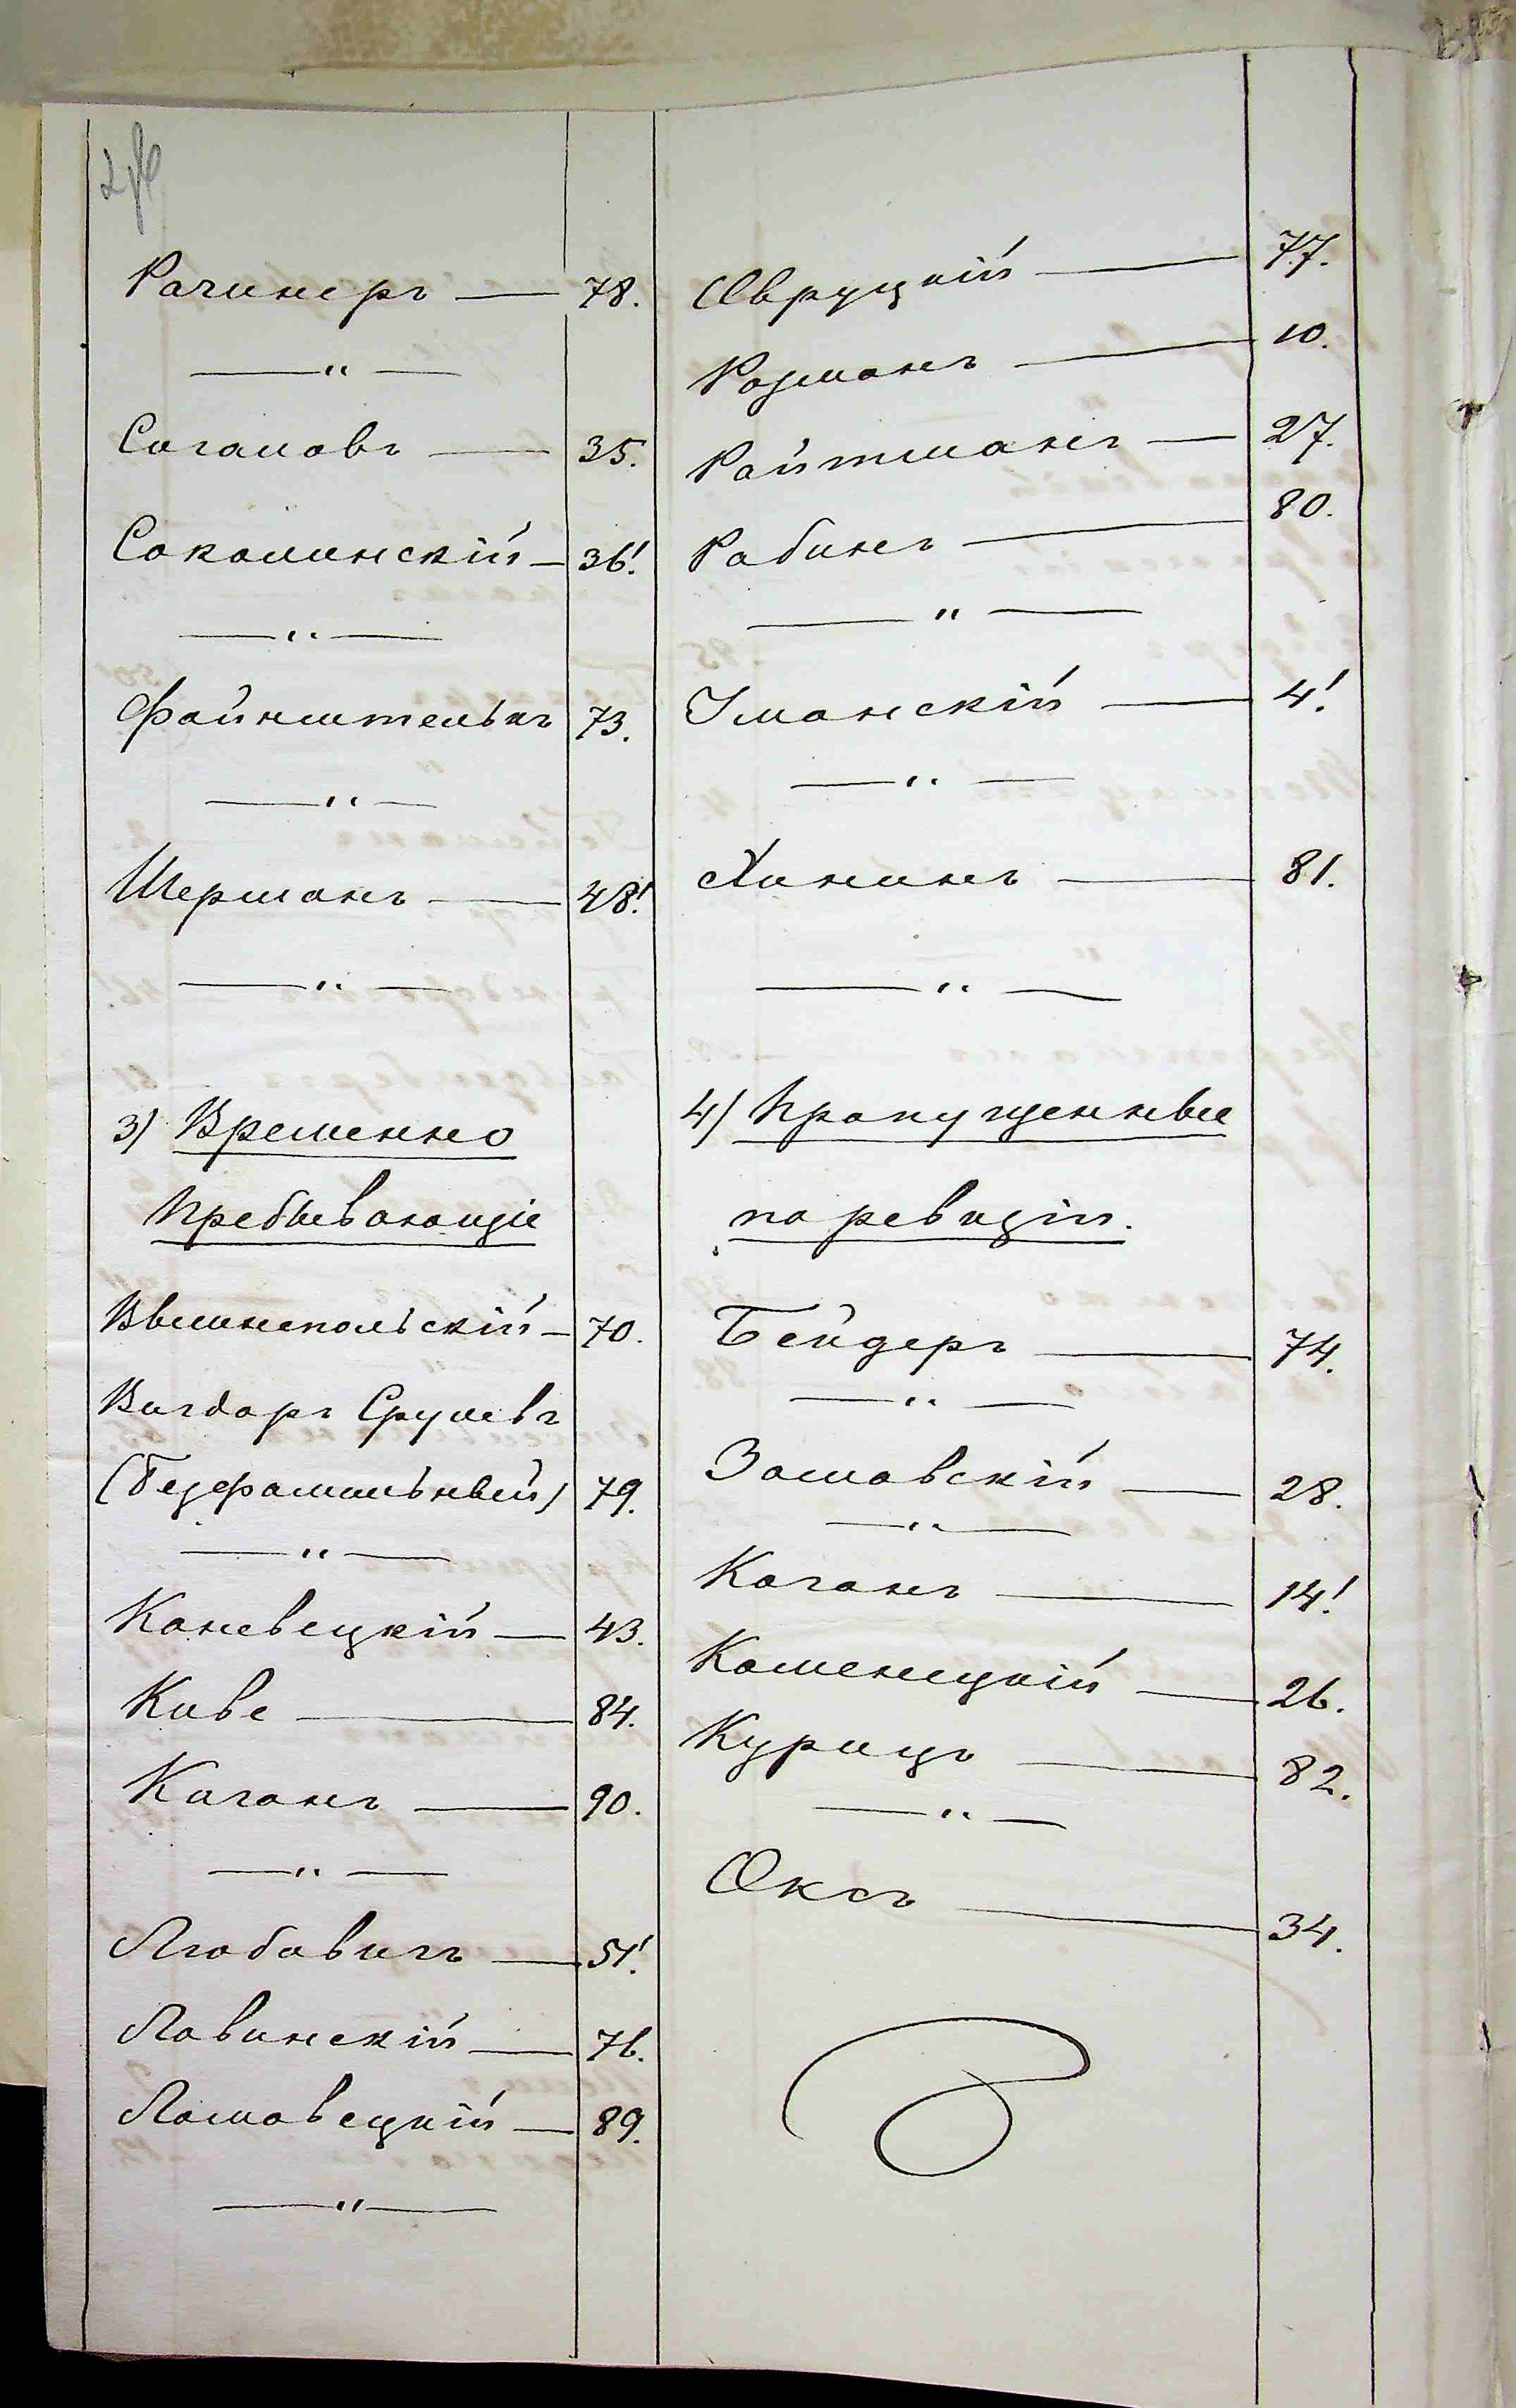 Рачинеръ — 78.
— " —
Сагаловъ — 35.
Соколинскій — 36!
— " —
Файнштейнъ 73.
— " —
Шерманъ — 48!
— " —
3) Временно
пребывающіе
Вышнепольскій — 70.
Вигдоръ Срулевъ
(безфамильный) 79.
— " —
Каневецкій — 43.
Киве — 84.
Каганъ — 90.
— " —
Любовичъ — 51!
Лавинскій — 76.
Ломовецкій — 89.
— " —
Овруцкій — 77.
Розманъ — 10.
Ройтманъ — 27.
Рабинъ — 80.
— " —
Уманскій — 4!
— " —
Хининъ — 81.
— " —
4) Пропущенные
по ревизіи.
Бейдеръ — 74.
— " —
Заславскій — 28.
— " —
Каганъ — 14!
Каменецкій — 26.
Курицъ — 82.
— " —
Оксъ — 34.